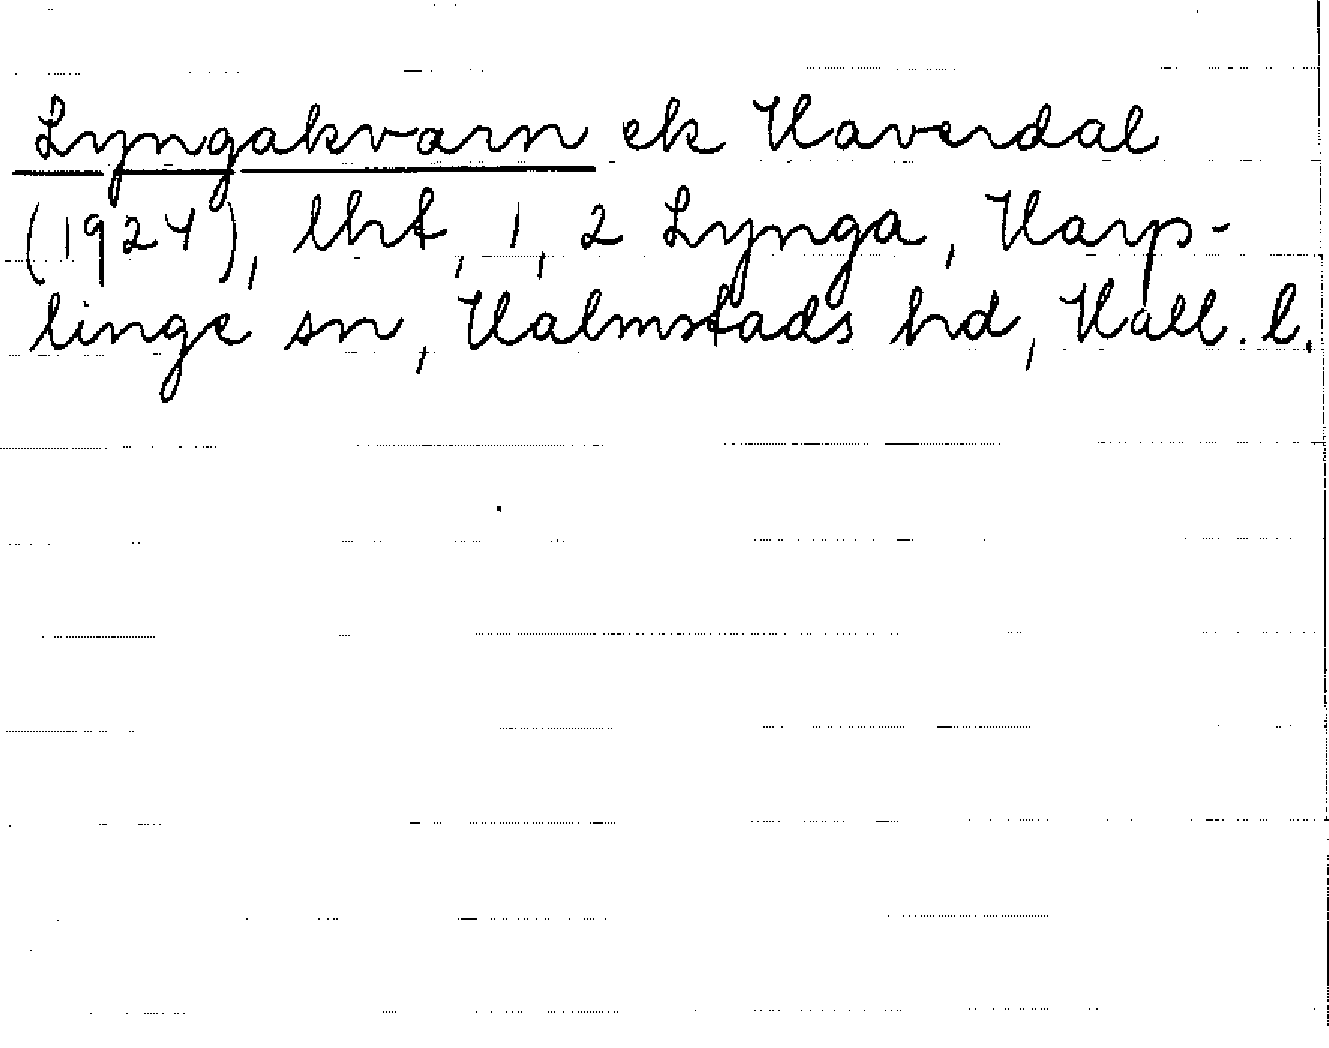 Lyngakvarn ek Haverdal
(1924), lht, 1, 2 Lynga, Harp-
linge sn, Halmstads hd, Hall. l.